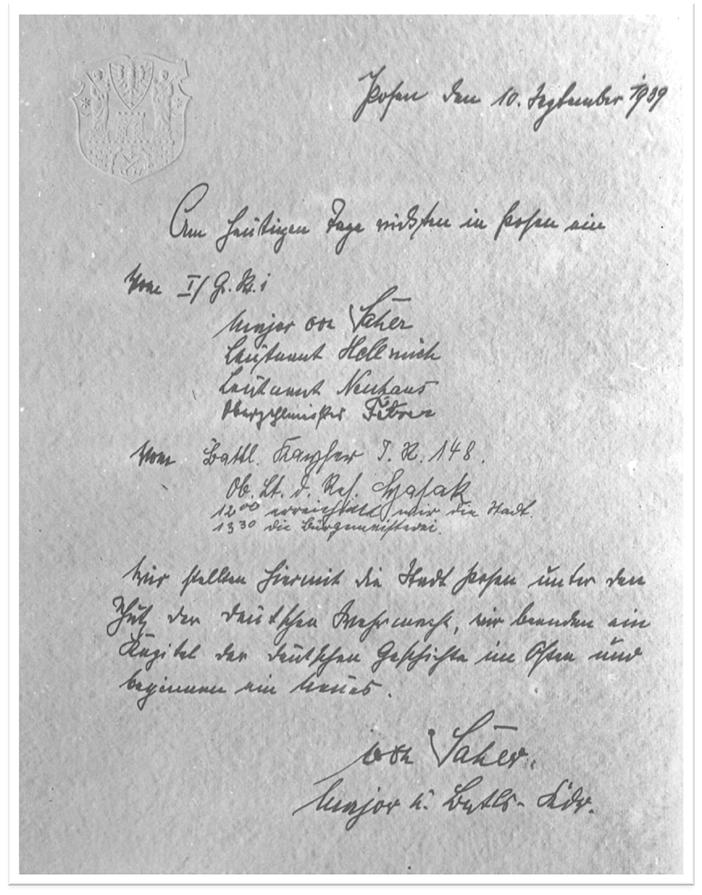 Posen den 10. September 1939
Am heutigen Tage rückten in Posen ein
Vom I/ G.R. 1
Major von Säher
Leutnant Hellmich
Leutnant Neuhaus
Oberzahlmeister
Vom Battl. J.R. 148.
Ob. Lt. d. Res.
12⁰⁰ erreichten wir die Stadt
13³⁰ die Bürgermeisterei.
Wir stellten hiermit die Stadt Posen unter den
Schutz der deutschen Wehrmacht, wir beenden ein
Kapitel der deutschen Geschichte im Osten und
beginnen ein neues.
von Säher.
Major u. Batls- Kdr.